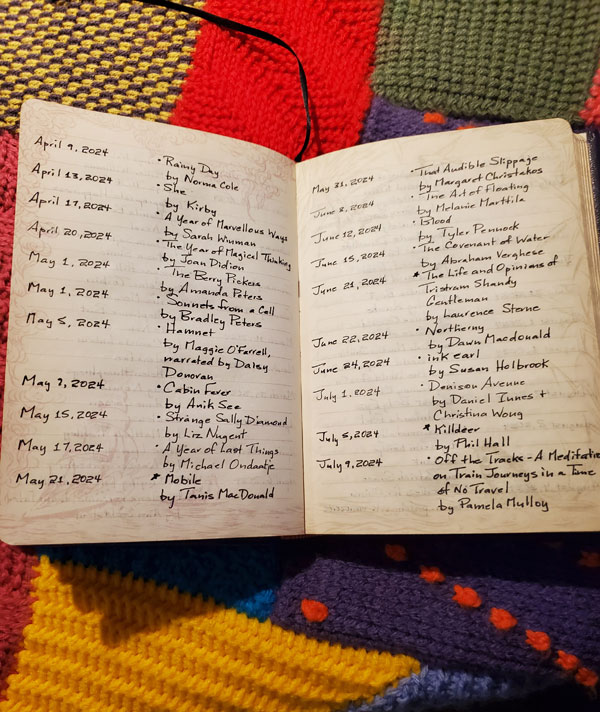 April 9, 2024 • Rainy Day
by Norma Cole
April 13, 2024 • She
by Kirby
April 17, 2024 • A Year of Marvellous Ways
by Sarah Winman
April 20, 2024 • The Year of Magical Thinking
by Joan Didion
May 1, 2024 • The Berry Pickers
by Amanda Peters
May 1, 2024 • Sonnets from a Cell
by Bradley Peters
May 5, 2024 • Hamnet
by Maggie O'Farrell,
narrated by Daisy
Donovan
May 7, 2024 • Cabin Fever
by Anik See
May 15, 2024 • Strange Sally Diamond
by Liz Nugent
May 17, 2024 • A Year of Last Things
by Michael Ondaatje
May 21, 2024 * Mobile
by Tanis MacDonald
May 31, 2024 • That Audible Slippage
by Margaret Christakos
June 2, 2024 • The Art of Floating
by Melanie Marttila
June 12, 2024 • Blood
by Tyler Pennock
June 15, 2024 • The Covenant of Water
by Abraham Verghese
June 21, 2024 * The Life and Opinions of
Tristram Shandy
Gentleman
by Laurence Sterne
June 22, 2024 • Northerny
by Dawn Macdonald
June 24, 2024 • ink earl
by Susan Holbrook
July 1, 2024 • Denison Avenue
by Daniel Innes +
Christina Wong
July 5, 2024 * Killdeer
by Phil Hall
July 9, 2024 • Off the Tracks - A Meditation
on Train Journeys in a Time
of No Travel
by Pamela Mulloy